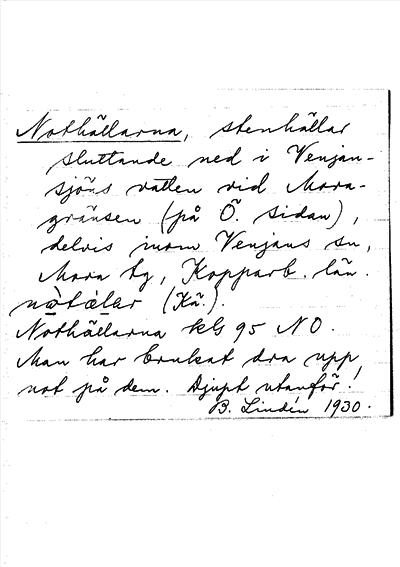 Nothällarna, stenhällar
sluttande ned i Venjan-
sjöns vatten vid Mora-
gränsen (på Ö. sidan),
delvis inom Venjans sn,
Mora tg, Kopparb. län.
(Kä.).
Nothällarna kls 95 NO.
Man har brukat dra upp
not på dem. Djupt utanför!
B. Lindén 1930.